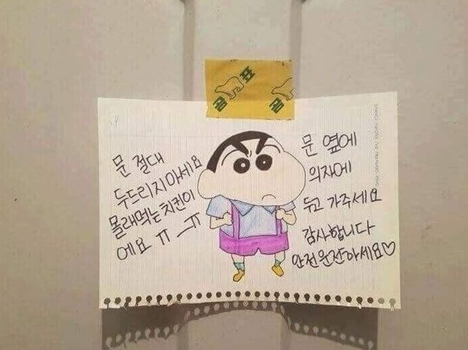 곰표
곰
문 절대
두드리지마세요
몰래먹는치킨이
에요 ㅠ_ㅠ
문 옆에
의자에
두고 가주세요
감사합니다
안전운전하세요♡